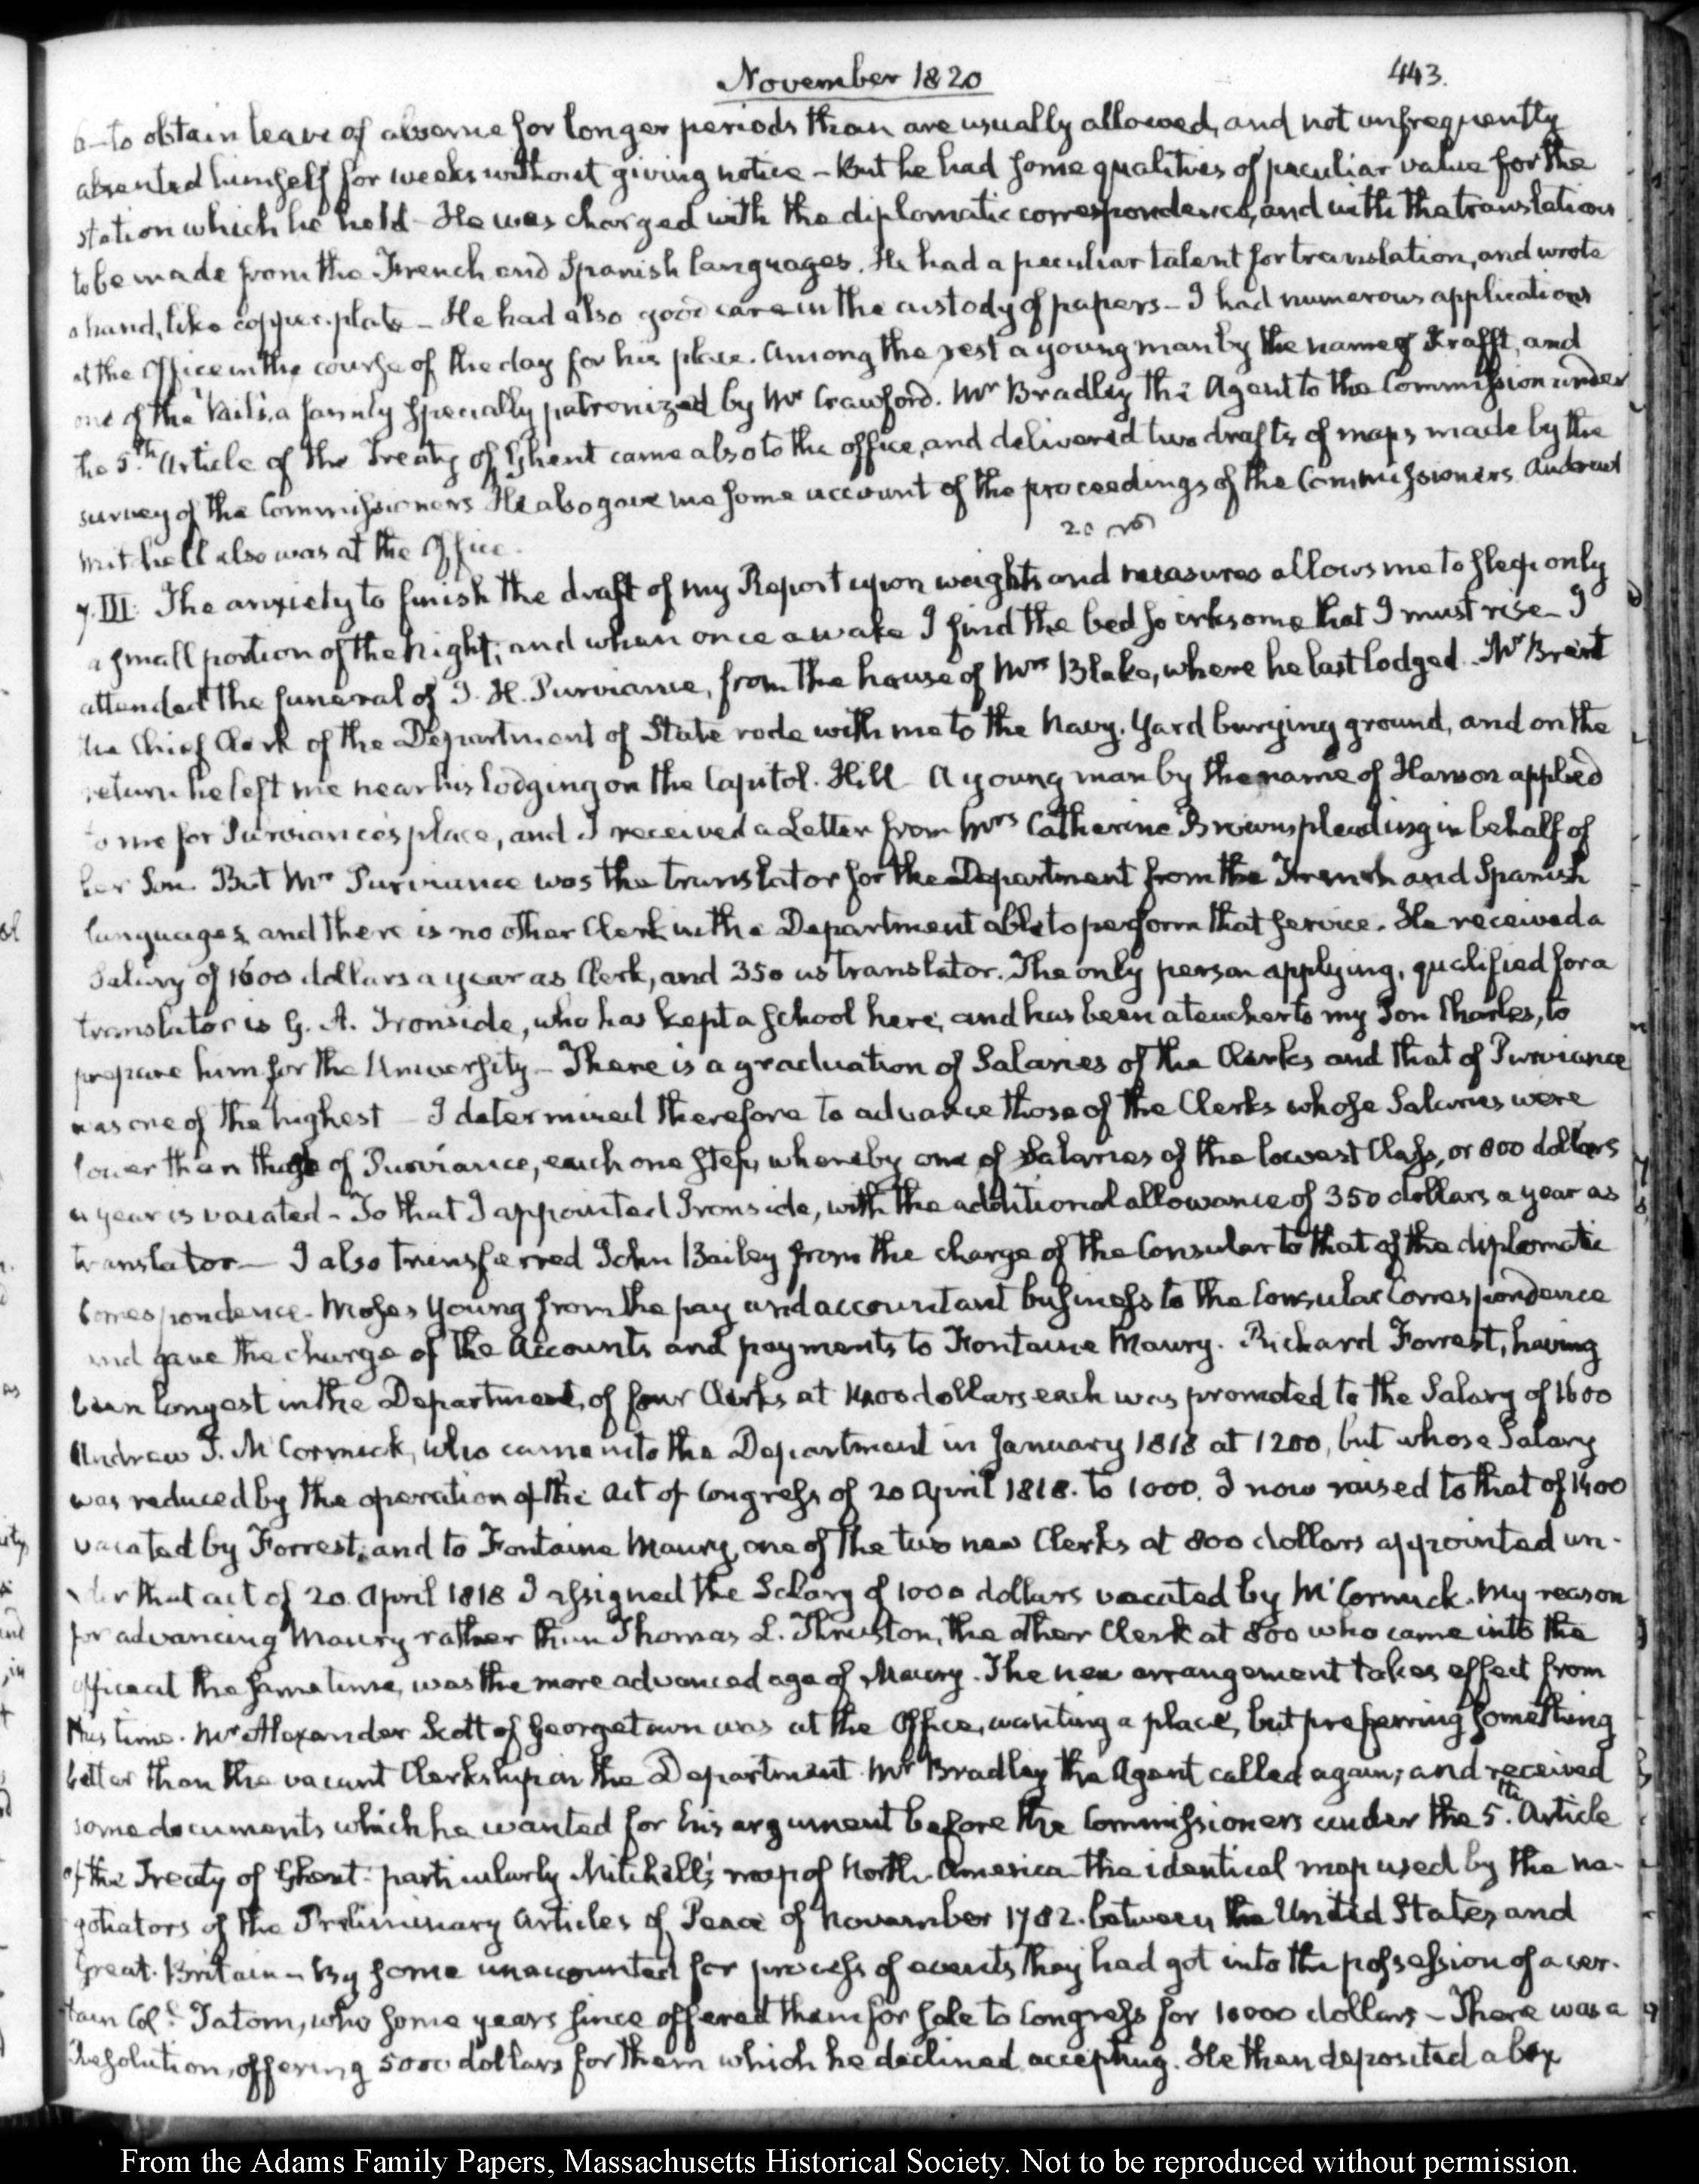 November 1820
443.
to obtain leave of absence for longer periods than are usually allowed, and not unfrequently
absented himself for weeks without giving notice – But he had some qualities of peculiar value for the
station which he held – He was charged with the diplomatic correspondence, and with the translations
to be made from the French and Spanish languages. He had a peculiar talent for translation, and wrote
a hand, like copper-plate – He had also good care in the custody of papers – I had numerous applications
at the Office in the course of the day for his place. Among the rest a young man by the name of Krafft, and
one of the Vail's, a family specially patronized by Mr Crawford. Mr Bradley the Agent to the Commission under
the 5.th Article of the Treaty of Ghent came also to the office, and delivered two drafts of maps made by the
survey of the Commissioners He also gave me some account of the proceedings of the Commissioners. Andrew
Mitchell also was at the Office.
7. III. The anxiety to finish the draft of my Report upon weights and measures allows me to sleep only
a small portion of the Night; and when once awake I find the bed so irksome that I must rise – I
attended the funeral of J. H. Purviance, from the house of Mrs Blake, where he last lodged. Mr Brent
the Chief Clerk of the Department of State rode with me to the Navy-Yard burying ground, and on the
return he left me near his lodging on the Capitol-Hill – A young man by the name of applied
to me for Purviance's place, and I received a Letter from Mrs Catherine Brown pleading in behalf of
her Son. But Mr Purviance was the translator for the Department from the French and Spanish
languages, and there is no other Clerk in the Department able to perform that service. He received a
Salary of 1600 dollars a year as Clerk, and 350 as translator. The only person applying, qualified for a
translator is G. A. Ironside, who has kept a School here, and has been a teacher to my Son Charles, to
prepare him for the University – There is a graduation of Salaries of the Clerks and that of Purviance
was one of the highest – I determined therefore to advance those of the Clerks whose Salaries were
lower than those of Purviance, each one step, whereby one of Salaries of the lowest Class, or 800 dollars
a year is vacated – So that I appointed Ironside, with the additional allowance of 350 dollars a year as
translator – I also transferred John Bailey from the charge of the Consular to that of the diplomatic
Correspondence – Moses Young from the pay and accountant business to the Consular Correspondence
and gave the charge of the Accounts and payments to Fontaine Maury. Richard Forrest, having
been longest in the Department, of four Clerks at 1400 dollars each was promoted to the Salary of 1600
Andrew T. McCormick, who came into the Department in January 1818 at 1200, but whose Salary
was reduced by the operation of the Act of Congress of 20 April 1818. to 1000. I now raised to that of 1400
vacated by Forrest; and to Fontaine Maury, one of the two new Clerks at 800 dollars appointed un-
der that act of 20. April 1818 I assigned the Salary of 1000 dollars vacated by McCormick. My reason
for advancing Maury rather than Thomas L. Thruston, the other Clerk at 800 who came into the
Office at the same time, was the more advanced age of Maury. The new arrangement takes effect from
this time. Mr Alexander Scott of Georgetown was at the Office, wanting a place, but preferring something
better than the vacant Clerkship in the Department. Mr Bradley the Agent called again; and received
some documents which he wanted for his argument before the Commissioners under the 5.th Article
of the Treaty of Ghent – particularly Mitchell's map of North-America the identical map used by the ne-
gotiators of the Preliminary Articles of Peace of November 1782. between the United States and
Great-Britain – By some unaccounted for process of events they had got into the possession of a cer-
tain Col.l Tatom, who some years since offered them for sale to Congress for 10000 dollars – There was a
Resolution, offering 5000 dollars for them which he declined accepting. He then deposited a box
From the Adams Family Papers, Massachusetts Historical Society. Not to be reproduced without permission.